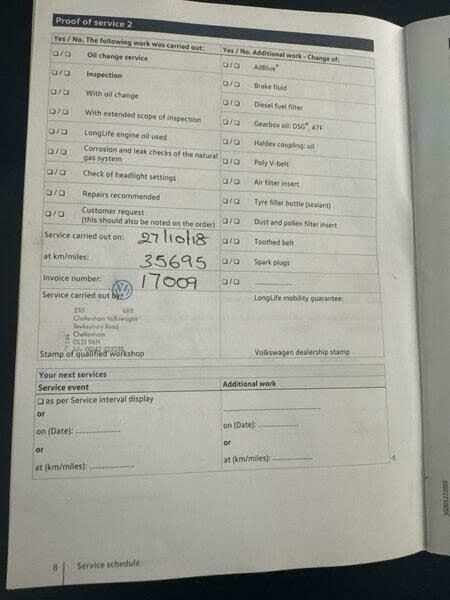 Proof of service 2
Yes / No. The following work was carried out:
❑ / ❑ Oil change service
❑ / ❑ Inspection
❑ / ❑ With oil change
❑ / ❑ With extended scope of inspection
❑ / ❑ LongLife engine oil used
❑ / ❑ Corrosion and leak checks of the natural
gas system
❑ / ❑ Check of headlight settings
❑ / ❑ Repairs recommended
❑ / ❑ Customer request
(this should also be noted on the order)
Service carried out on: 27/10/18
at km/miles: 35695
Invoice number: 17009
Service carried out by:
210 688
Cheltenham Volkswagen
Tewkesbury Road
Cheltenham
GL51 9AH
Stamp of qualified workshop
Yes / No. Additional work - Change of:
❑ / ❑ AdBlue®
❑ / ❑ Brake fluid
❑ / ❑ Diesel fuel filter
❑ / ❑ Gearbox oil: DSG®, ATF
❑ / ❑ Haldex coupling: oil
❑ / ❑ Poly V-belt
❑ / ❑ Air filter insert
❑ / ❑ Tyre filler bottle (sealant)
❑ / ❑ Dust and pollen filter insert
❑ / ❑ Toothed belt
❑ / ❑ Spark plugs
❑ / ❑ ....................
LongLife mobility guarantee:
Volkswagen dealership stamp
Your next services
Service event
❑ as per Service interval display
or
on (Date): ....................
or
at (km/miles): ....................
Additional work
..............................
on (Date): ....................
or
at (km/miles): ....................
8 Service schedule